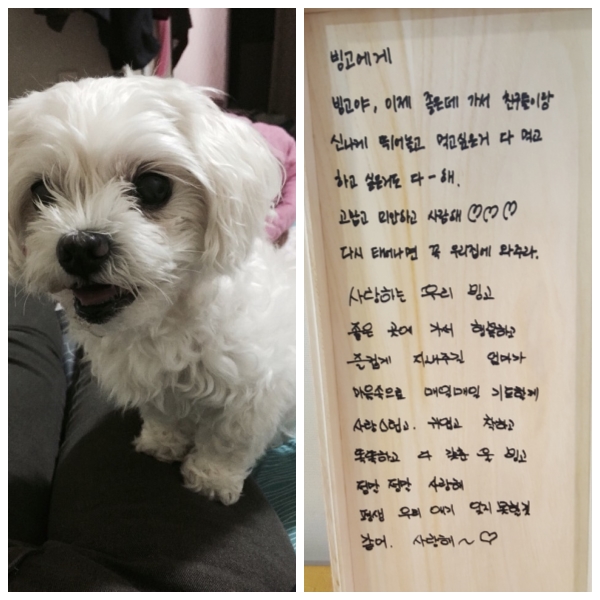 빙고에게
빙고야, 이제 좋은데 가서 친구들이랑
신나게 뛰어놀고 먹고싶은거 다 먹고
하고 싶은거도 다-해.
고맙고 미안하고 사랑해 ♡♡♡
다시 태어나면 꼭 우리집에 와주라.
사랑하는 우리 빙고
좋은 곳에 가서 행복하고
즐겁게 지내주길 엄마가
마음속으로 매일매일 기도할게
사랑스럽고. 귀엽고 착하고
똑똑하고 다 갖춘 울 빙고
정말 정말 사랑해
평생 우리 애기 잊지 못할것
같어. 사랑해~♡